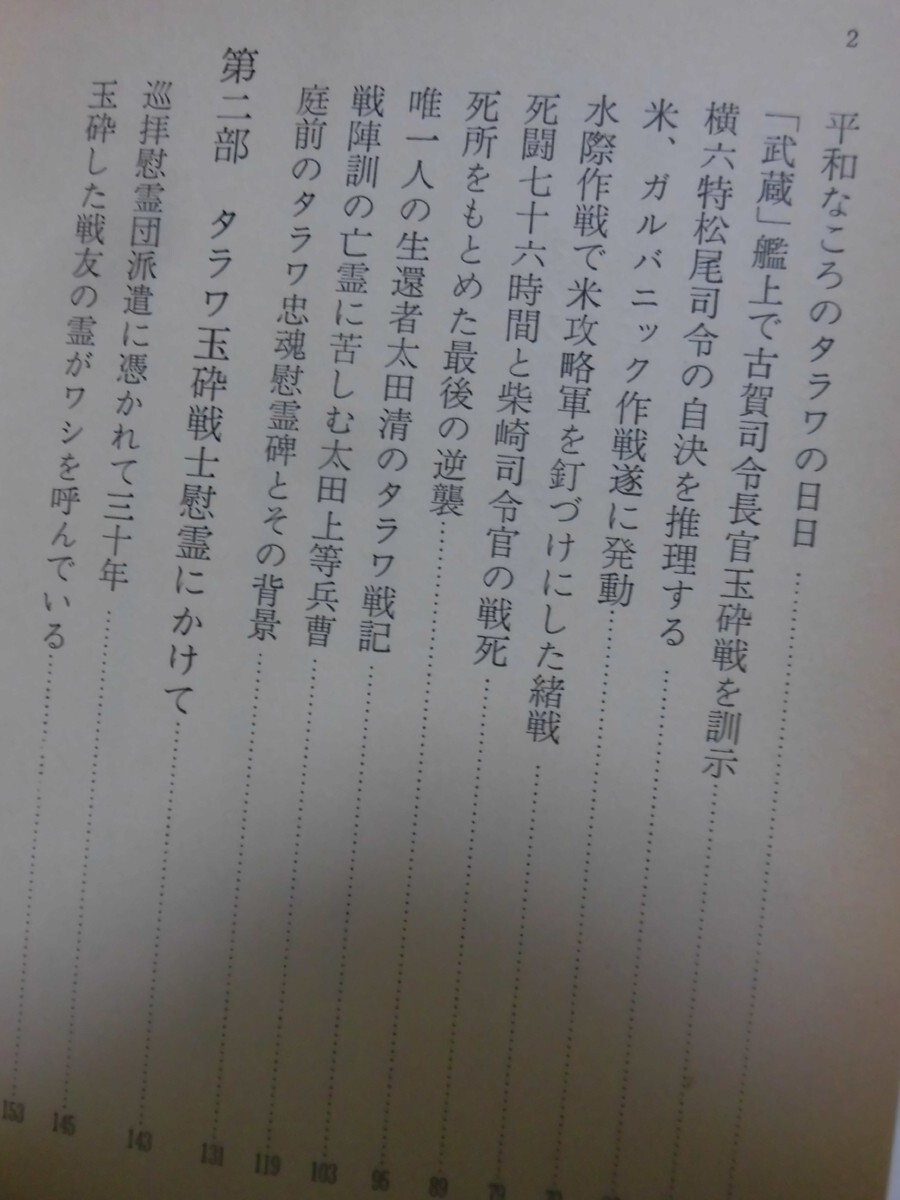 2
平和なころのタラワの日日
「武蔵」艦上で古賀司令長官玉砕戦を訓示
横六特松尾司令の自決を推理する
米、ガルバニック作戦遂に発動
水際作戦で米攻略軍を釘づけにした緒戦 79
死闘七十六時間と柴崎司令官の戦死 89
死所をもとめた最後の逆襲
唯一人の生還者太田清のタラワ戦記 103
戦陣訓の亡霊に苦しむ太田上等兵曹 119
庭前のタラワ忠魂慰霊碑とその背景 131
第二部 タラワ玉砕戦士慰霊にかけて 143
巡拝慰霊団派遣に憑かれて三十年 145
玉砕した戦友の霊がワシを呼んでいる 153